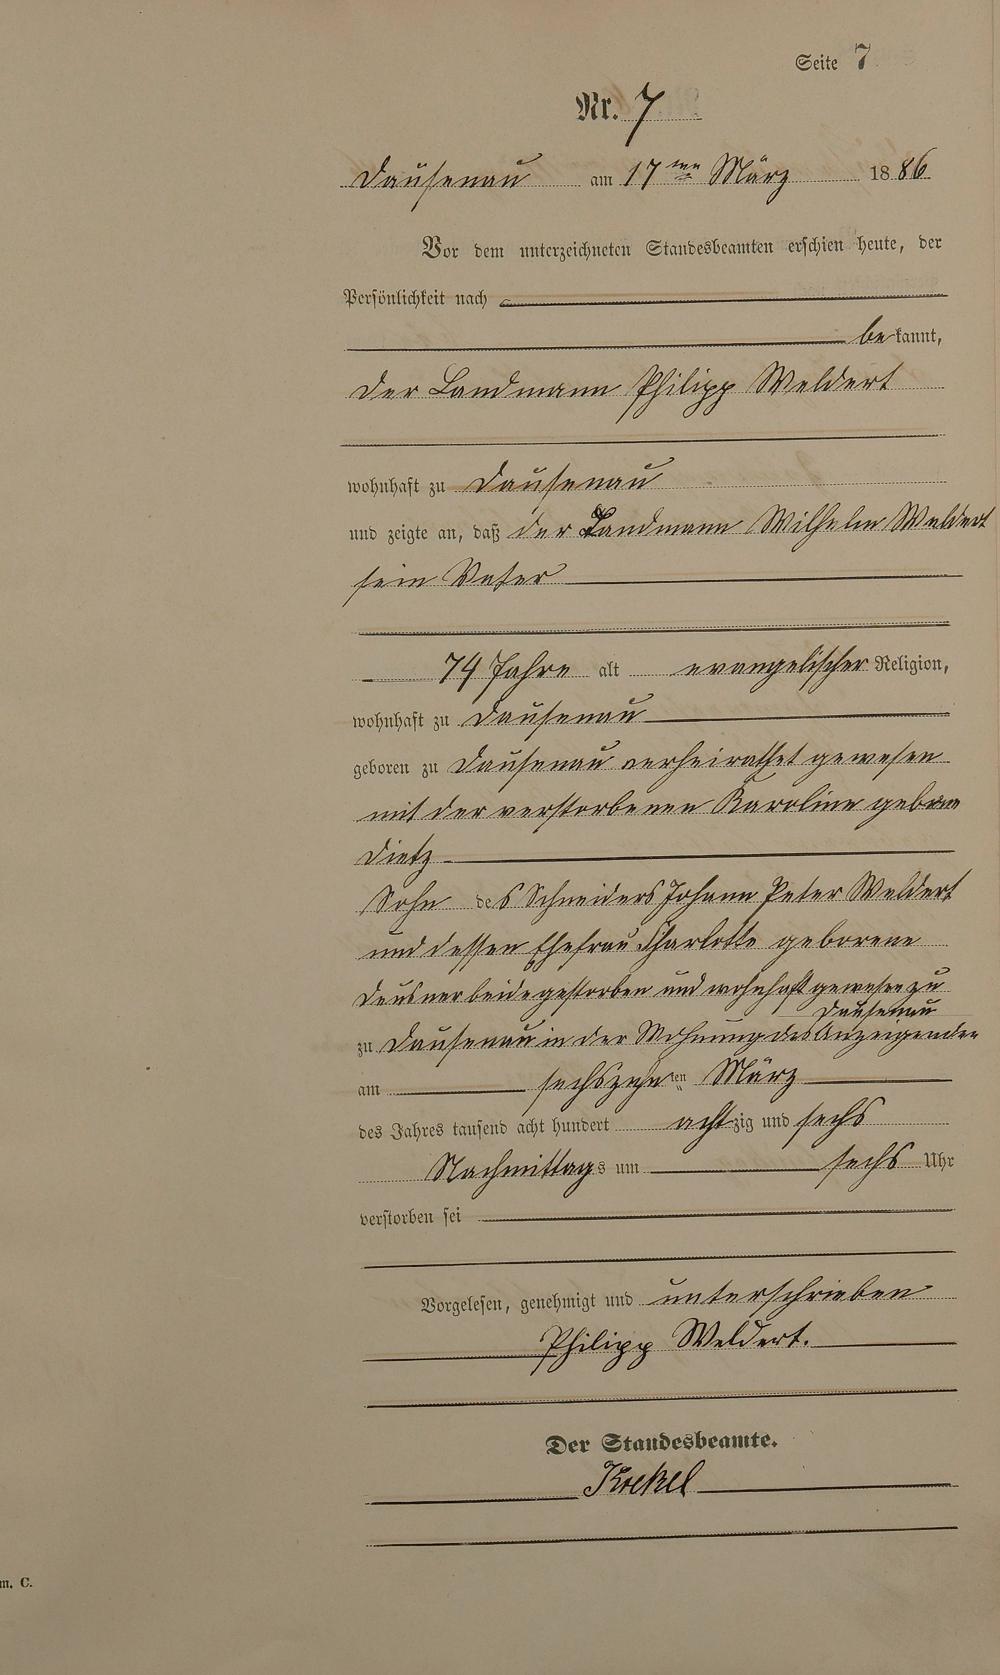 Seite 7
Nr. 7
Dausenau am 17ten März 1886
Vor dem unterzeichneten Standesbeamten erschien heute, der
Persönlichkeit nach
bekannt,
der Landmann Philipp Weldert
wohnhaft zu Dausenau
und zeigte an, daß der Landmann Wilhelm Weldert
sein Vater
74 Jahre alt evangelischer Religion,
wohnhaft zu Dausenau
geboren zu Dausenau verheirathet gewesen
mit der verstorbenen Karoline
Dietz
Sohn des Schneiders Johann Peter Weldert
und dessen Ehefrau Charlotte geborene
beide gestorben und wohnhaft gewesen zu
Dausenau
zu Dausenau in der Wohnung des Anzeigenden
am sechszehnten März
des Jahres tausend acht hundert achtzig und sechs
Nachmittags um sechs Uhr
verstorben sei
Vorgelesen, genehmigt und unterschrieben
Philipp Weldert.
Der Standesbeamte.
m. C.